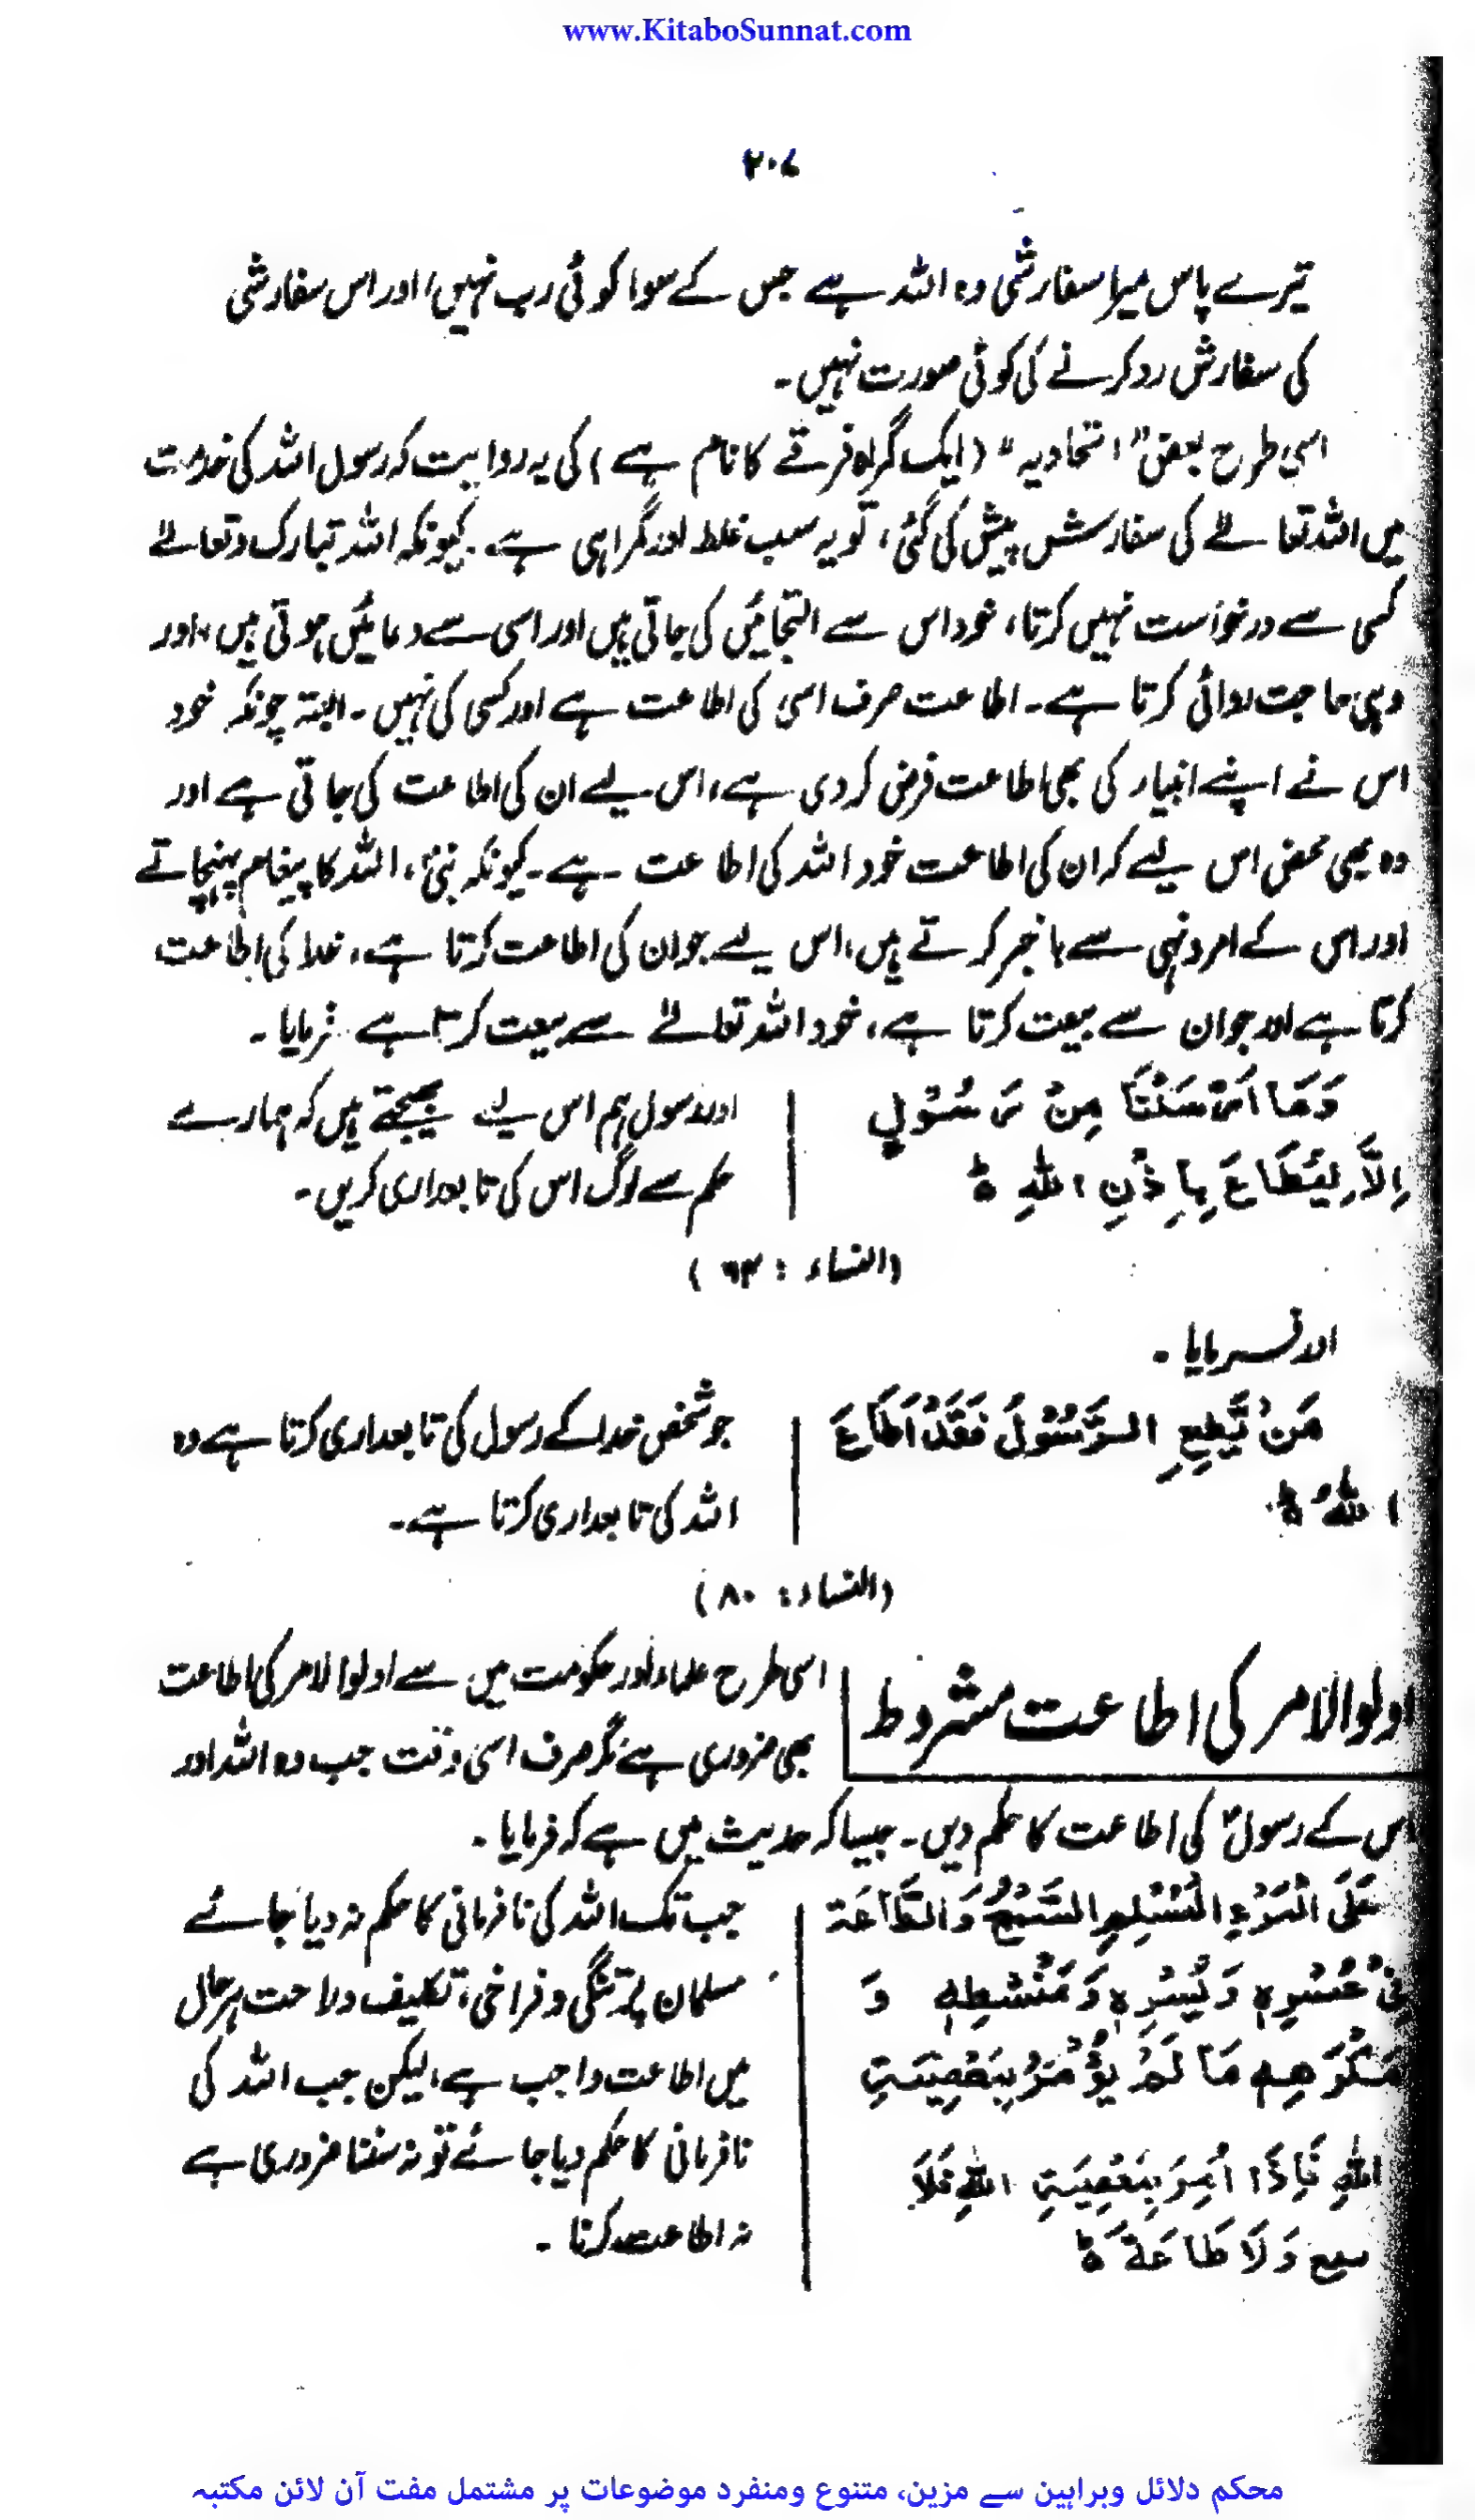 www.KitaboSunnat.com
۲۰۷
تیرے پاس میرا سفارشی وہ اللہ ہے جس کے سوا کوئی رب نہیں، اور اس سفارشی
کی سفارش رد کرنے کی کوئی صورت نہیں۔
اسی طرح بعض "اتحادیہ" (ایک گمراہ فرقے کا نام ہے) کی یہ روایت کہ رسول اللہ کی خدمت
میں اللہ تعالےٰ کی سفارش پیش کی گئی، تو یہ سب غلط اور گمراہی ہے۔ کیونکہ اللہ تبارک وتعالےٰ
کسی سے درخواست نہیں کرتا، خود اس سے التجائیں کی جاتی ہیں اور اسی سے دعائیں ہوتی ہیں، اور
وہی حاجت روائی کرتا ہے۔ اطاعت صرف اسی کی اطاعت ہے اور کسی کی نہیں۔ البتہ چونکہ خود
اس نے اپنے انبیاء کی بھی اطاعت فرض کر دی ہے، اس لیے ان کی اطاعت کی جاتی ہے اور
وہ بھی محض اس لیے کہ ان کی اطاعت خود اللہ کی اطاعت ہے۔ کیونکہ نبیؐ، اللہ کا پیغام پہنچاتے
اور اس کے امر و نہی سے باخبر کرتے ہیں، اس لیے جو ان کی اطاعت کرتا ہے، خدا کی اطاعت
کرتا ہے اور جو ان سے بیعت کرتا ہے، خود اللہ تعالےٰ سے بیعت کرتا ہے۔ فرمایا۔
وَمَا اَرْسَلْنَا مِنْ رَسُوْلٍ
اِلَّا لِيُطَاعَ بِاِذْنِ اللهِ ط
اور رسول ہم اس لیے بھیجتے ہیں کہ ہمارے
حکم سے لوگ اس کی تابعداری کریں۔
(النساء : ۶۴)
اور فرمایا۔
مَنْ يُّطِعِ الرَّسُوْلَ فَقَدْ اَطَاعَ
اللهَ ط
جو شخص خدا کے رسول کی تابعداری کرتا ہے وہ
اللہ کی تابعداری کرتا ہے۔
(النساء: ۸۰)
اولوالامر کی اطاعت مشروط
اسی طرح علماء اور حکومت میں سے اولوالامر کی اطاعت
بھی ضروری ہے مگر صرف اسی وقت جب وہ اللہ اور
اس کے رسولؐ کی اطاعت کا حکم دیں۔ جیسا کہ حدیث میں ہے کہ فرمایا۔
عَلَى الْمَرْءِ الْمُسْلِمِ السَّمْعُ وَالطَّاعَة
فِيْ عُسْرِهٖ وَيُسْرِهٖ وَمَنْشَطِهٖ وَ
مَكْرَهِهٖ مَا لَمْ يُؤْمَرْ بِمَعْصِيَةِ
اللهِ فَاِذَا اُمِرَ بِمَعْصِيَةِ اللهِ فَلَا
سمع وَلَا طَاعَةَ ط
جب تک اللہ کی نافرمانی کا حکم نہ دیا جائے
مسلمان پر تنگی و فراخی، تکلیف و راحت ہر حال
میں اطاعت واجب ہے، لیکن جب اللہ کی
نافرمانی کا حکم دیا جائے تو نہ سننا ضروری ہے
نہ اطاعت کرنا۔
محکم دلائل وبراہین سے مزین، متنوع ومنفرد موضوعات پر مشتمل مفت آن لائن مکتبہ